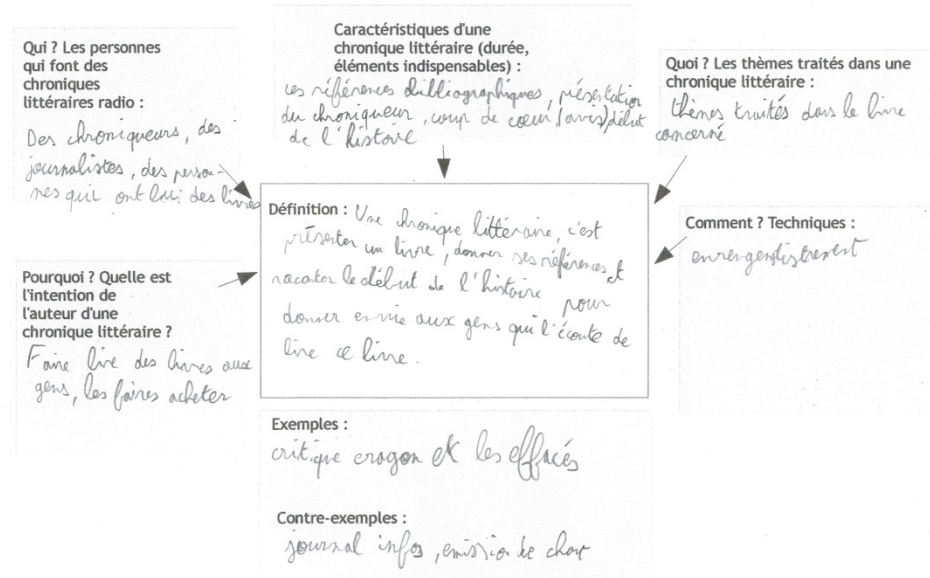 Qui ? Les personnes
qui font des
chroniques
littéraires radio :
Des chroniqueurs, des
journalistes, des person-
nes qui ont lu des livres
Caractéristiques d'une
chronique littéraire (durée,
éléments indispensables) :
les références bibliographiques, présentation
du chroniqueur, coup de cœur (avis) début
de l'histoire
Quoi ? Les thèmes traités dans une
chronique littéraire :
thèmes traités dans le livre
concerné
Définition : Une chronique littéraire, c'est
présenter un livre, donner ses références et
raconter le début de l'histoire pour
donner envie aux gens qui l'écoute de
lire ce livre.
Comment ? Techniques :
Pourquoi ? Quelle est
l'intention de
l'auteur d'une
chronique littéraire ?
Faire lire des livres aux
gens, les faires acheter
Exemples :
critique eragon et les effacés
Contre-exemples :
journal infos, emission de